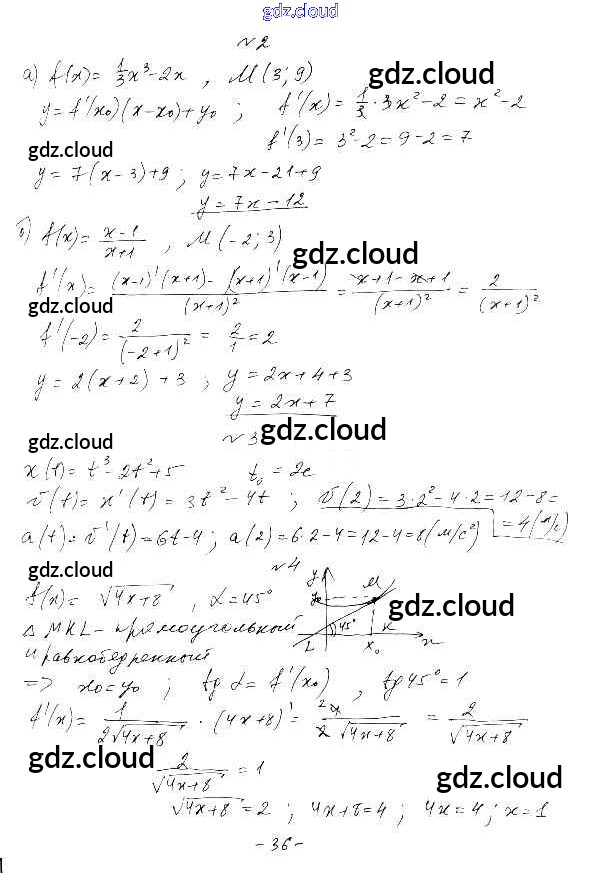 gdz.cloud
№2
а) f(x) = 1/3 x³ - 2x , M(3; 9)
gdz.cloud
y = f'(x₀)(x - x₀) + y₀ ; f'(x) = 1/3 · 3x² - 2 = x² - 2
f'(3) = 3² - 2 = 9 - 2 = 7
gdz.cloud
y = 7(x - 3) + 9 ; y = 7x - 21 + 9
gdz.cloud
y = 7x - 12
б) f(x) = (x - 1)/(x + 1) , M(-2; 3)
gdz.cloud
f'(x) = ((x-1)'(x+1) - (x+1)'(x-1))/(x+1)² = (x + 1 - x + 1)/(x+1)² = 2/(x+1)²
gdz.cloud
f'(-2) = 2/(-2+1)² = 2/1 = 2
gdz.cloud
y = 2(x + 2) + 3 ; y = 2x + 4 + 3
y = 2x + 7
№3
gdz.cloud
gdz.cloud
x(t) = t³ - 2t² + 5 t₀ = 2c
v(t) = x'(t) = 3t² - 4t ; v(2) = 3·2² - 4·2 = 12 - 8 =
= 4 (м/с)
a(t) = v'(t) = 6t - 4 ; a(2) = 6·2 - 4 = 12 - 4 = 8 (м/с²)
№4
gdz.cloud
f(x) = √4x+8 , α = 45°
y M
y₀
45° K
L x₀ x
gdz.cloud
Δ MKL - прямоугольный
и равнобедренный
=> x₀ = y₀ ; tg α = f'(x₀) , tg 45° = 1
gdz.cloud
f'(x) = 1/(2√4x+8) · (4x+8)' = 2 4/(2√4x+8) = 2/√4x+8
gdz.cloud
gdz.cloud
2/√4x+8 = 1
√4x+8 = 2 ; 4x+8=4 ; 4x = 4 ; x = 1
- 36 -